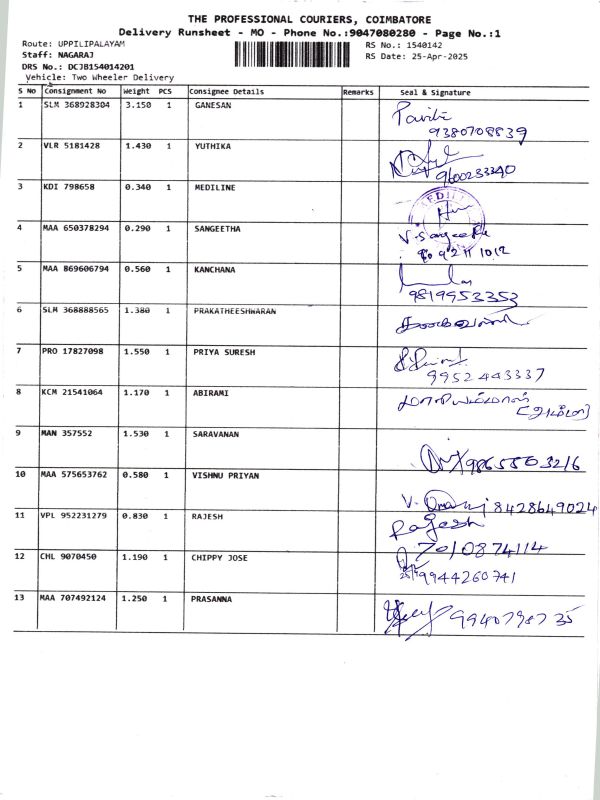 THE PROFESSIONAL COURIERS, COIMBATORE
Delivery Runsheet - MO - Phone No.:9047080280 - Page No.:1
Route: UPPILIPALAYAM
RS No.: 1540142
Staff: NAGARAJ
RS Date: 25-Apr-2025
DRS No.: DCJB154014201
Vehicle: Two Wheeler Delivery
S No Consignment No Weight PCS Consignee Details Remarks Seal & Signature
1 SLM 368928304 3.150 1 GANESAN
9380708839
2 VLR 5181428 1.430 1 YUTHIKA
9600233340
3 KDI 798658 0.340 1 MEDILINE
4 MAA 650378294 0.290 1 SANGEETHA V. Sangeetha
5 MAA 869606794 0.560 1 KANCHANA
9819953353
6 SLM 368888565 1.380 1 PRAKATHEESHWARAN
7 PRO 17827098 1.550 1 PRIYA SURESH
9952443337
8 KCM 21541064 1.170 1 ABIRAMI
9 MAN 357552 1.530 1 SARAVANAN
9865803216
10 MAA 575653762 0.580 1 VISHNU PRIYAN
8428649024
11 VPL 952231279 0.830 1 RAJESH Rajesh
7010874114
12 CHL 9070450 1.190 1 CHIPPY JOSE
9944260741
13 MAA 707492124 1.250 1 PRASANNA
9940798735